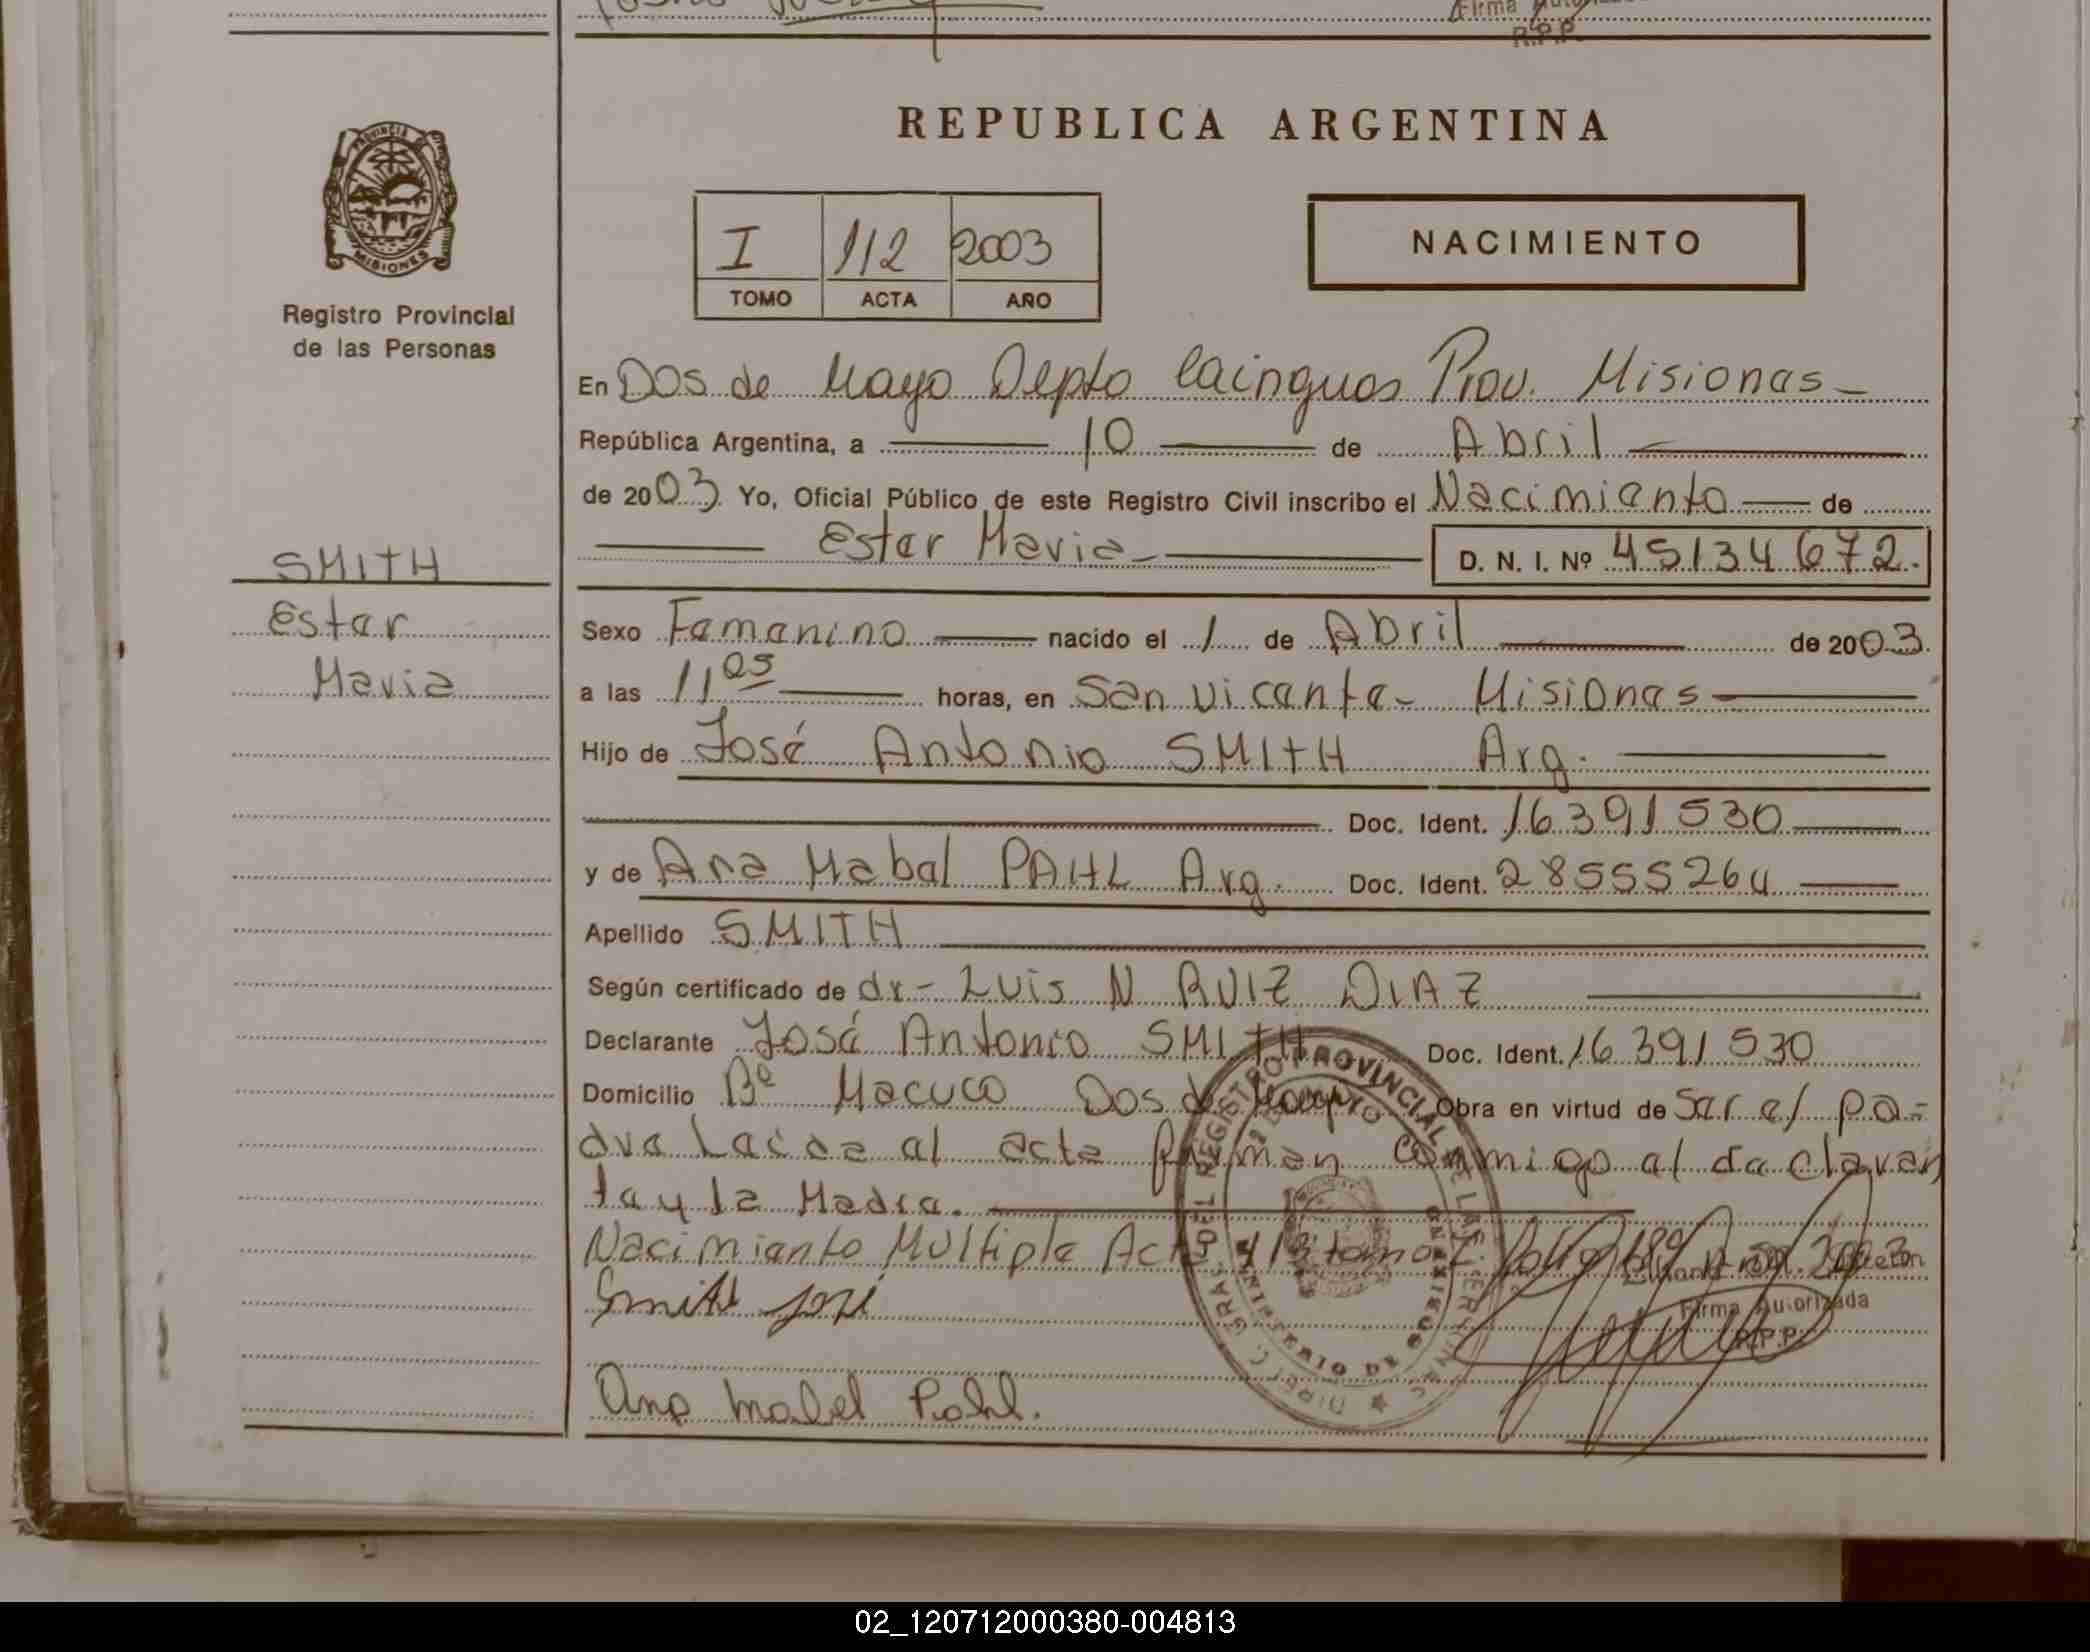 Firma
R.P.P.
PROVINCIA DE
MISIONES
Registro Provincial
de las Personas
REPUBLICA ARGENTINA
I 112 2003
TOMO ACTA AÑO
NACIMIENTO
En Dos de Mayo Depto Cainguas Prov. Misiones
República Argentina, a 10 de Abril
de 2003 Yo, Oficial Público de este Registro Civil inscribo el Nacimiento de
Ester Maria
D. N. I. Nº 45134672.
SMITH
Ester
Maria
Sexo Femenino nacido el 1 de Abril de 2003
a las 11 05 horas, en San Vicente - Misiones
Hijo de José Antonio SMITH Arg.
Doc. Ident. 16391530
y de Ana Mabel PAHL Arg. Doc. Ident. 28555264
Apellido SMITH
Según certificado de dr - Luis N RUIZ DIAZ
Declarante José Antonio SMITH Doc. Ident. 16391530
Domicilio Bº Macuco Dos de Mayo Obra en virtud de ser el pa-
dre Leida el acta firman conmigo el declaran
te y la Madre.
Nacimiento Multiple Acta 113 tomo I folio 2003
Smith José
Firma Autorizada
R.P.P.
Ana Mabel Pahl.
DIRECC. GRAL. DEL REGISTRO PROVINCIAL DE LAS PERSONAS
MINISTERIO DE GOBIERNO
02_120712000380-004813